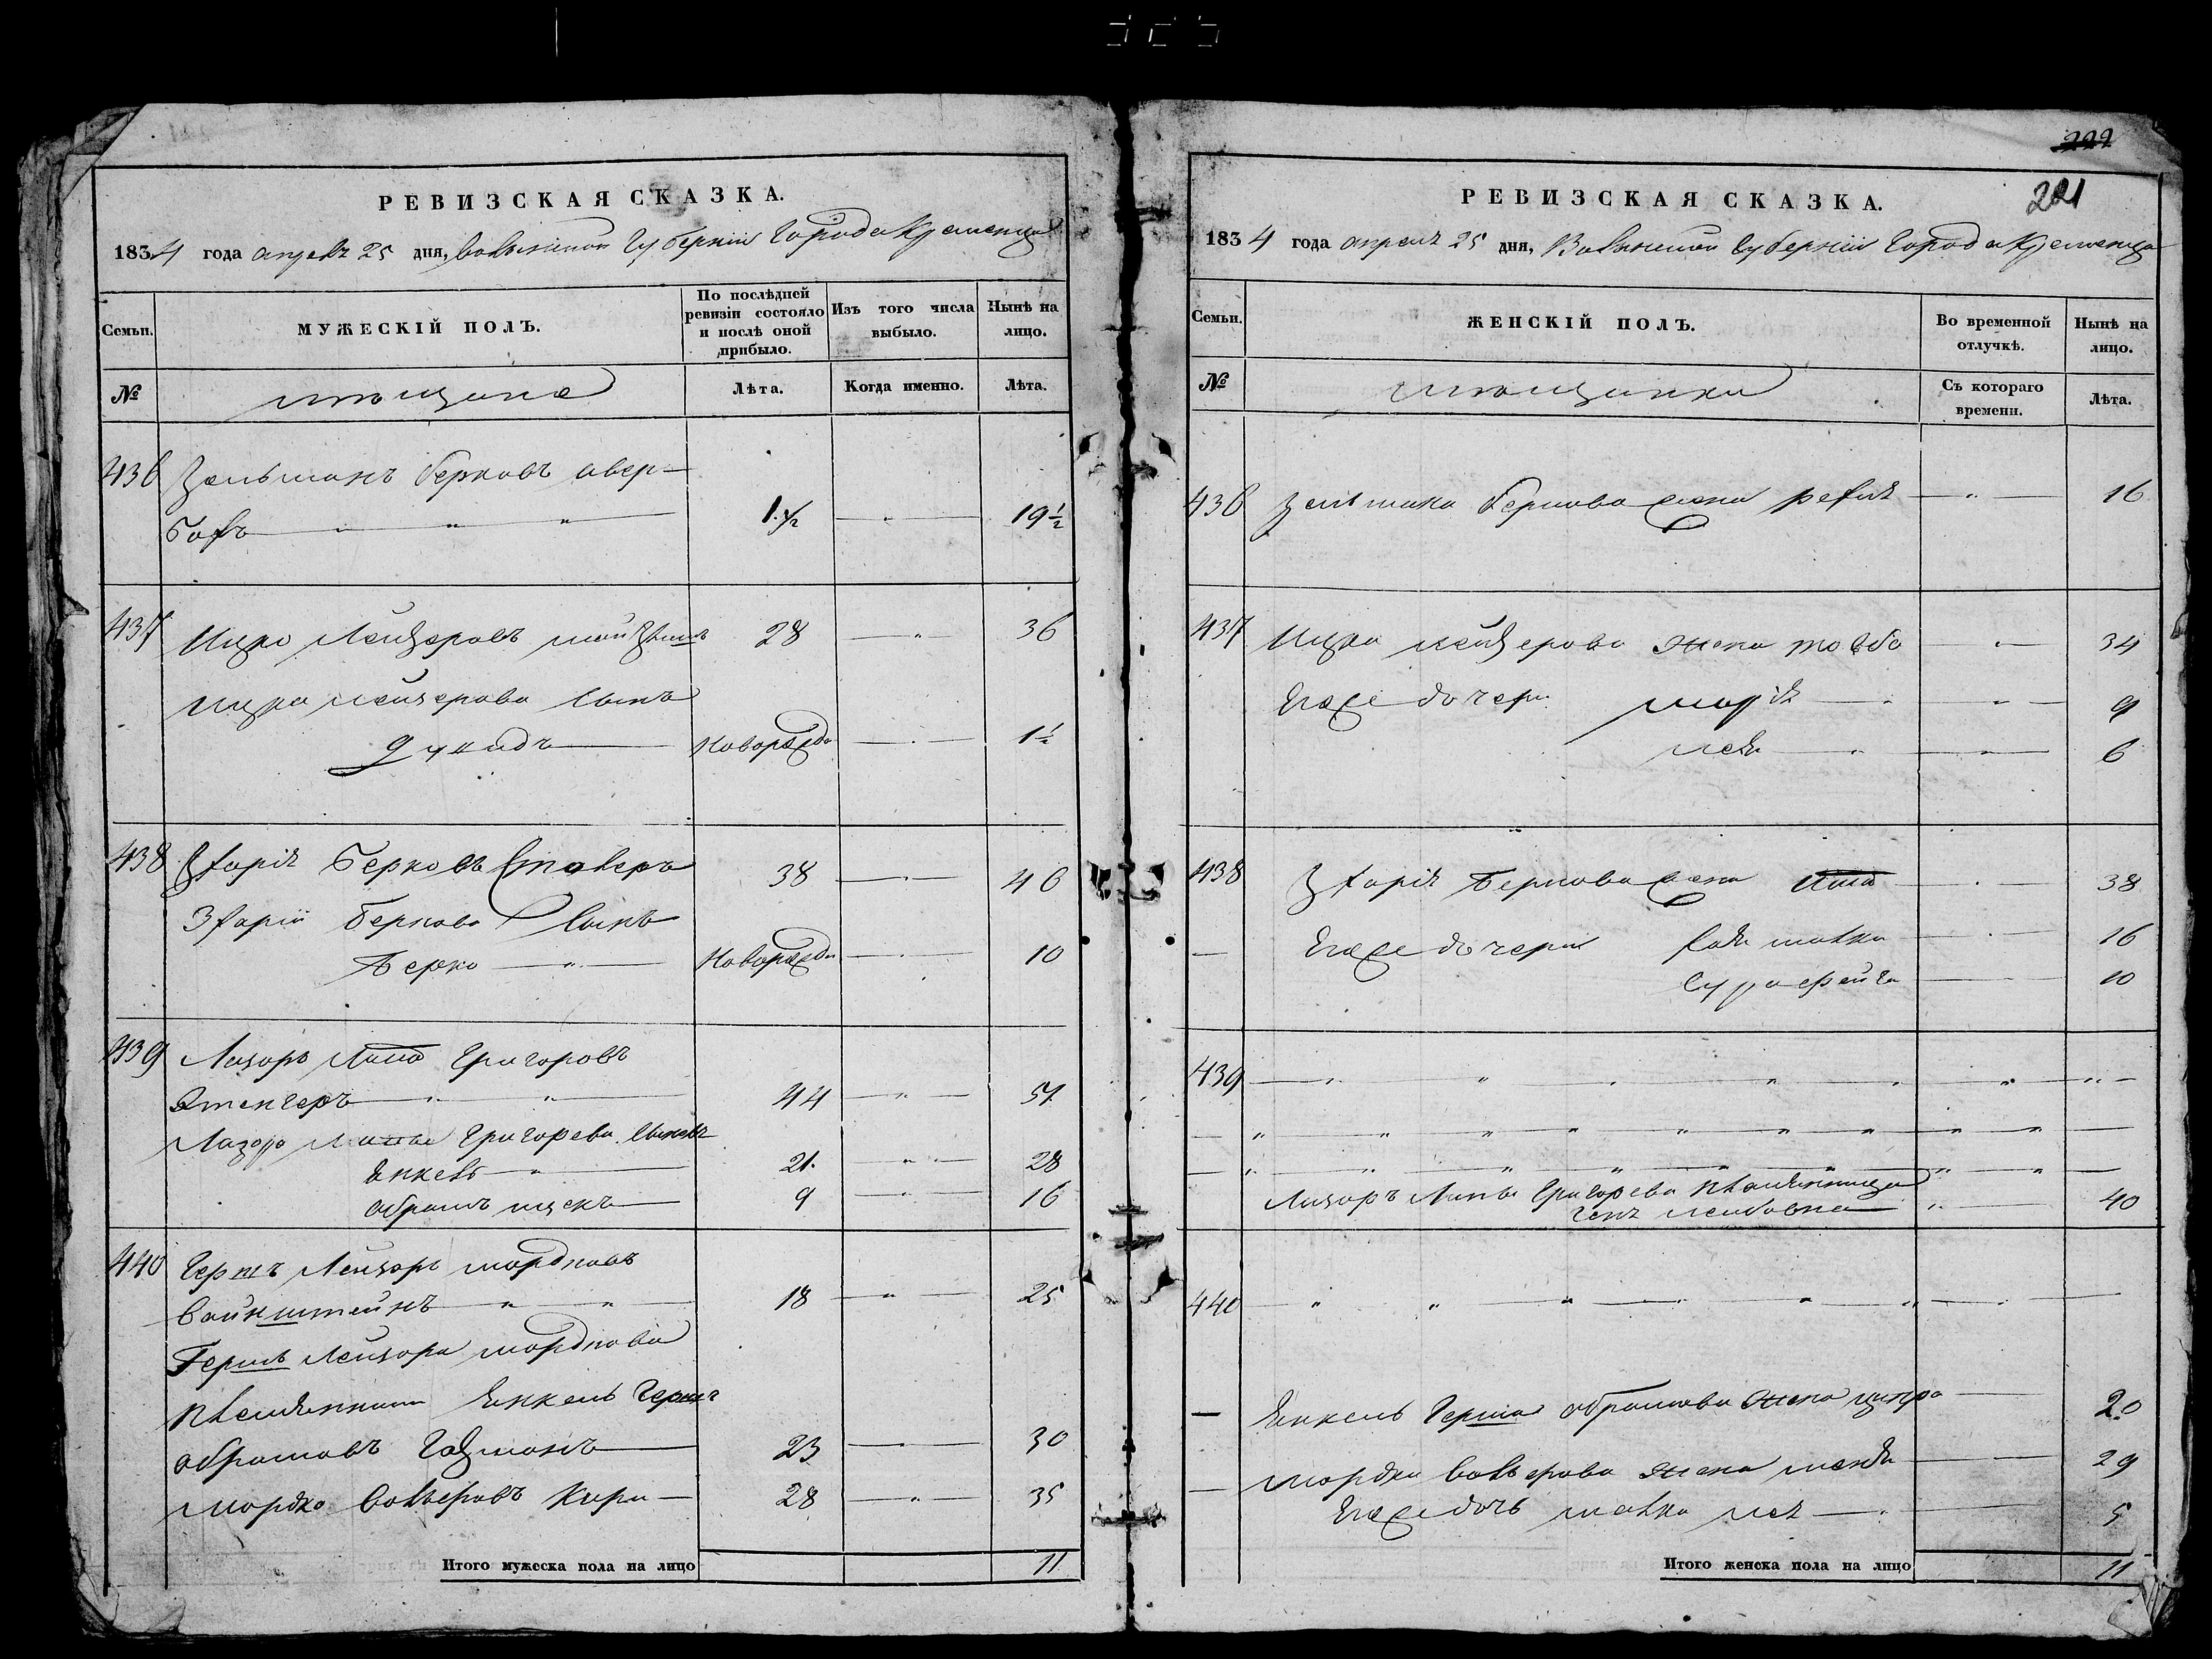 РЕВИЗСКАЯ СКАЗКА.
1834 года апреля 25 дня, Волынской Губернии Города Кременца
Семьи.
МУЖЕСКІЙ ПОЛЪ.
По послѣдней ревизіи состояло и послѣ оной прибыло.
Изъ того числа выбыло.
Нынѣ на лицо.
№
мѣщане
Лѣта.
Когда именно.
Лѣта.
436 Зельманъ Берковъ Авер-
бохъ 1 1/2 19 1/2
437 Ицко Лейзеровъ 28 36
Ицка Лейзерова сынъ
Дукидъ Новорожде 1 1/2
438 Зхарія Берковъ Столеръ 38 46
Зхаріи Беркова сынъ
Берко Новорожде 10
439 Лазоръ Липа Григоровъ
Этенгеръ 44 51
Лазора Липы Григорева сыновя
Янкель 21 28
Абрамъ Ицекъ 9 16
440 Гершъ Лейзоръ Мордковъ
Вайнштейнъ 18 25
Гершъ Лейзора Мордкова
племянники Янкель Гершъ
Абрамовъ Гохманъ 23 30
Мордко Вольеровъ Кири 28 35
Итого мужеска пола на лицо 11
222
221
РЕВИЗСКАЯ СКАЗКА.
1834 года апреля 25 дня, Волынской Губерніи Города Кременца
Семьи.
ЖЕНСКІЙ ПОЛЪ.
Во временной отлучкѣ.
Нынѣ на лицо.
№
мѣщанки
Съ котораго времени.
Лѣта.
436 Зельмана Беркова жена Рехля 16
437 Ицка Лейзерова жена Товба 34
Егоже дочери Марія 9
Лея 6
438 Зхарія Беркова жена 38
Егоже дочери Хая Малка 16
Сура Фейга 10
439
Лазоръ Липы Григорева племянница
Геня Лейбовна 40
440
Янкель Герша Абрамова жена Ципра 20
Мордка Вольерова жена Менья 29
Егоже дочь Малка Лея 5
Итого женска пола на лицо 11